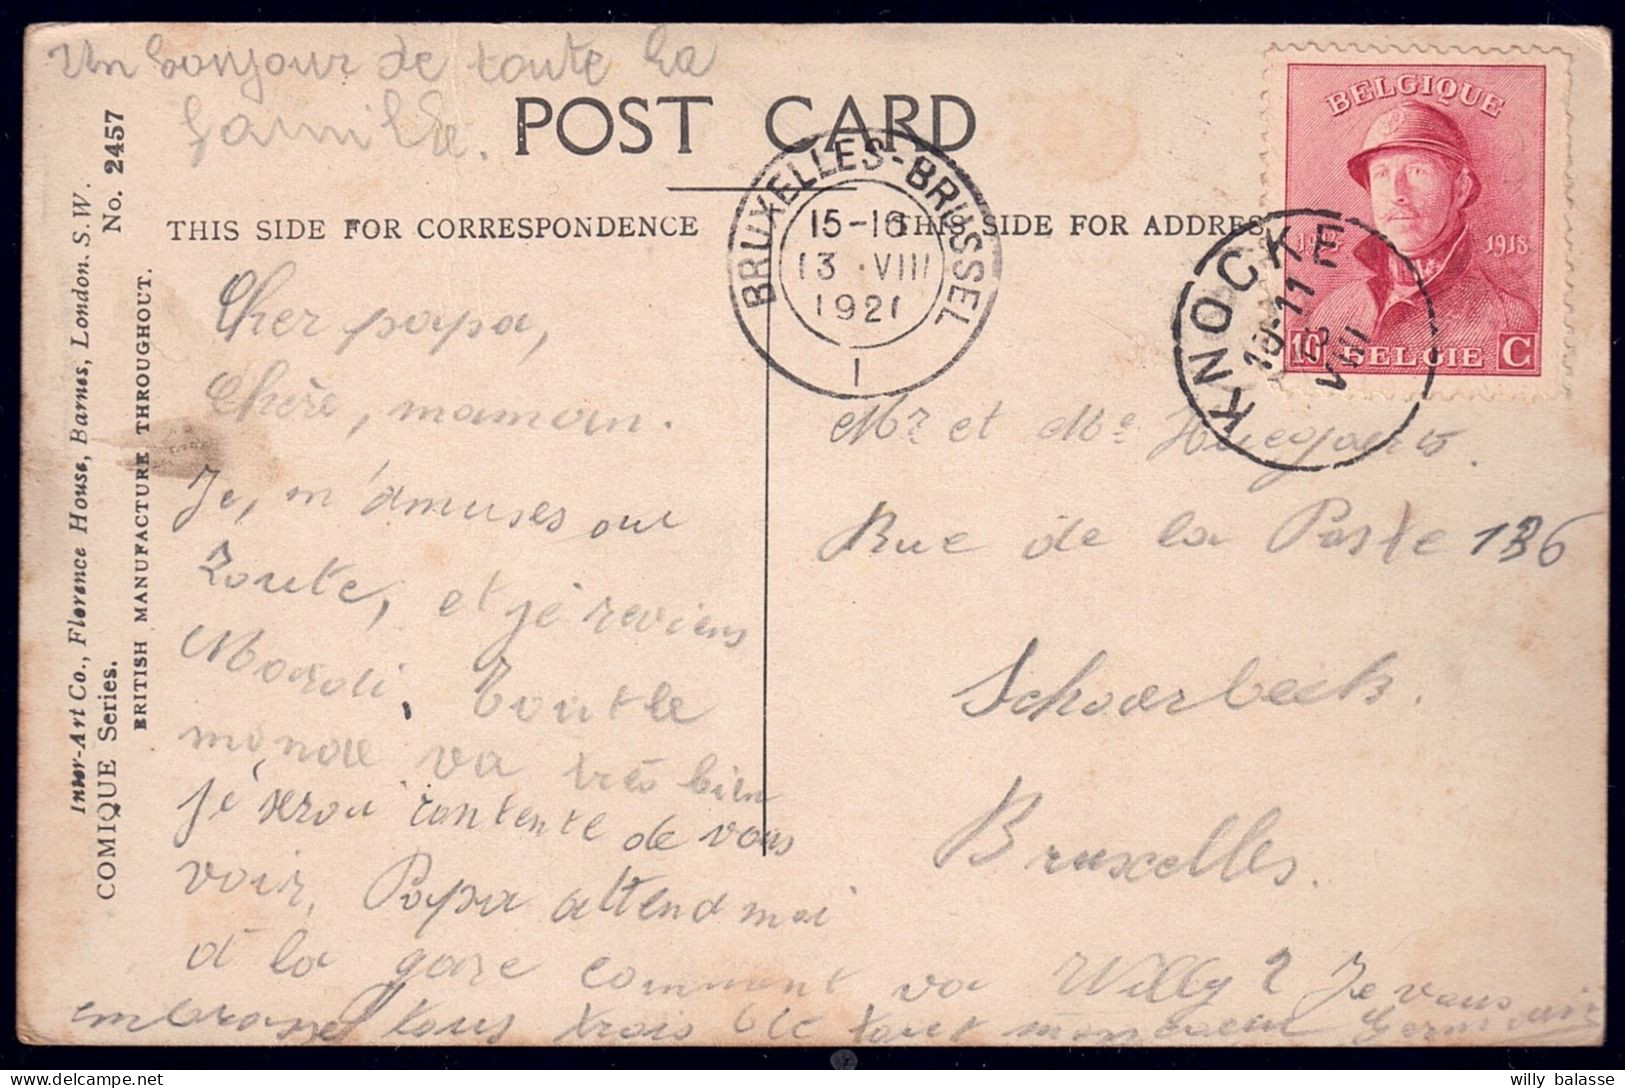 Un bonjour de toute la
famille.
POST CARD
THIS SIDE FOR CORRESPONDENCE
THIS SIDE FOR ADDRES
Inter-Art Co., Florence House, Barnes, London. S.W.
COMIQUE Series.
No. 2457
BRITISH MANUFACTURE THROUGHOUT.
BRUXELLES-BRUSSEL
15-16
13 · VIII
1921
1
BELGIQUE
1918
10 BELGIE C
KNOCKE
10-11
13
VIII
Cher papa,
Chère, maman.
Je, m'amuses au
Zoute, et je reviens
Mardi. Tout le
monde va très bien
je serai contente de vous
voir, Papa attend moi
à la gare comment va Willy? Je vous
embrasse tous trois de tout mon coeur Germaine
Mr et Me
Rue de la Poste 136
Schaerbeek.
Bruxelles.
willy balasse